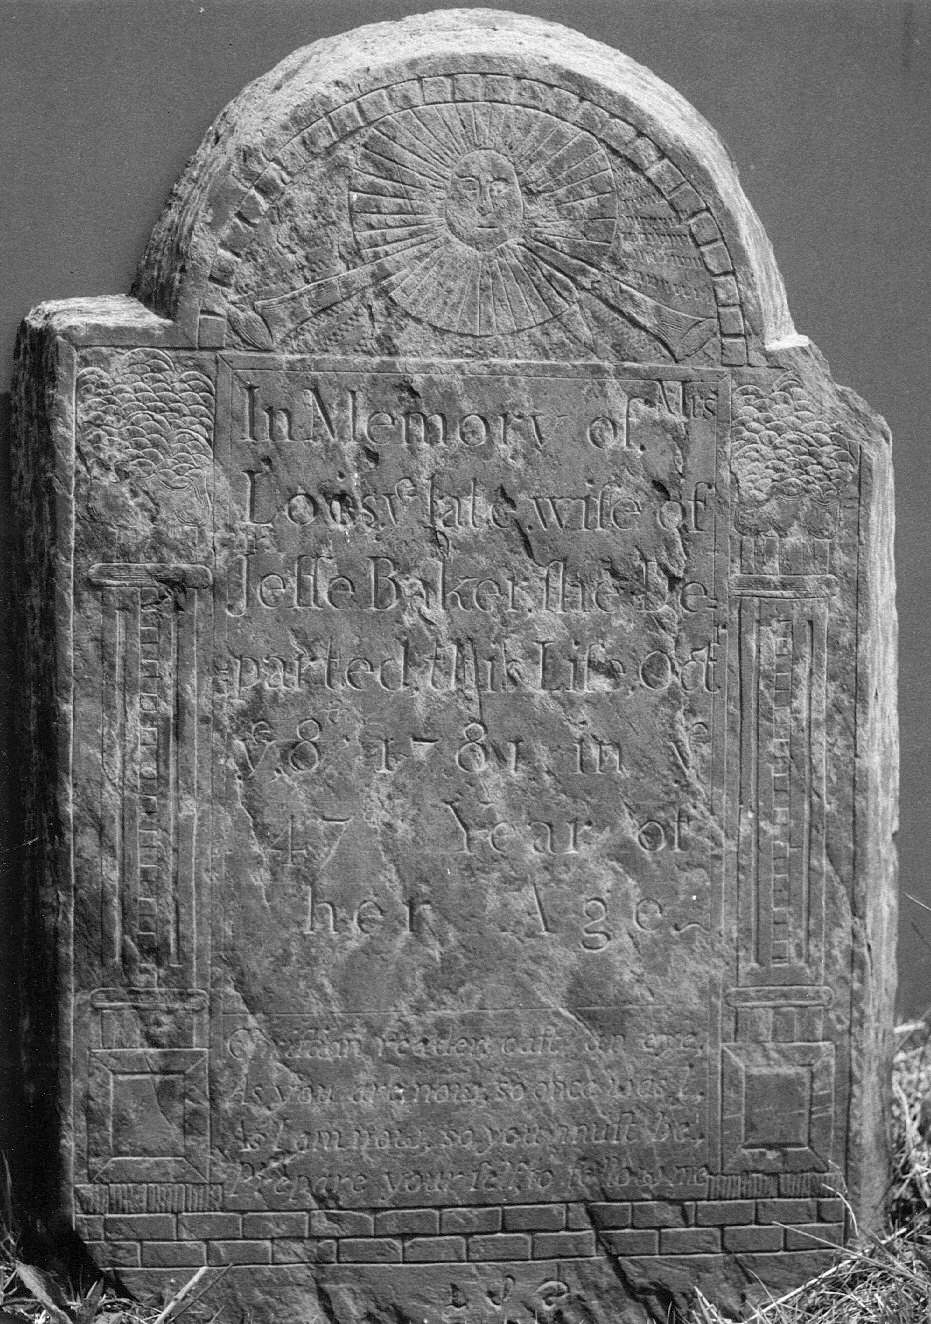 In Memory of Mrs
Loosy late wife of
Jesse Baker, she De
parted this Life oct
ye 8 1781 in ye
47 Year of
her Age
Christian Reader cast an eye,
As you are now, so once was I,
As I am now, so you must be,
Prepare yourself to follow me